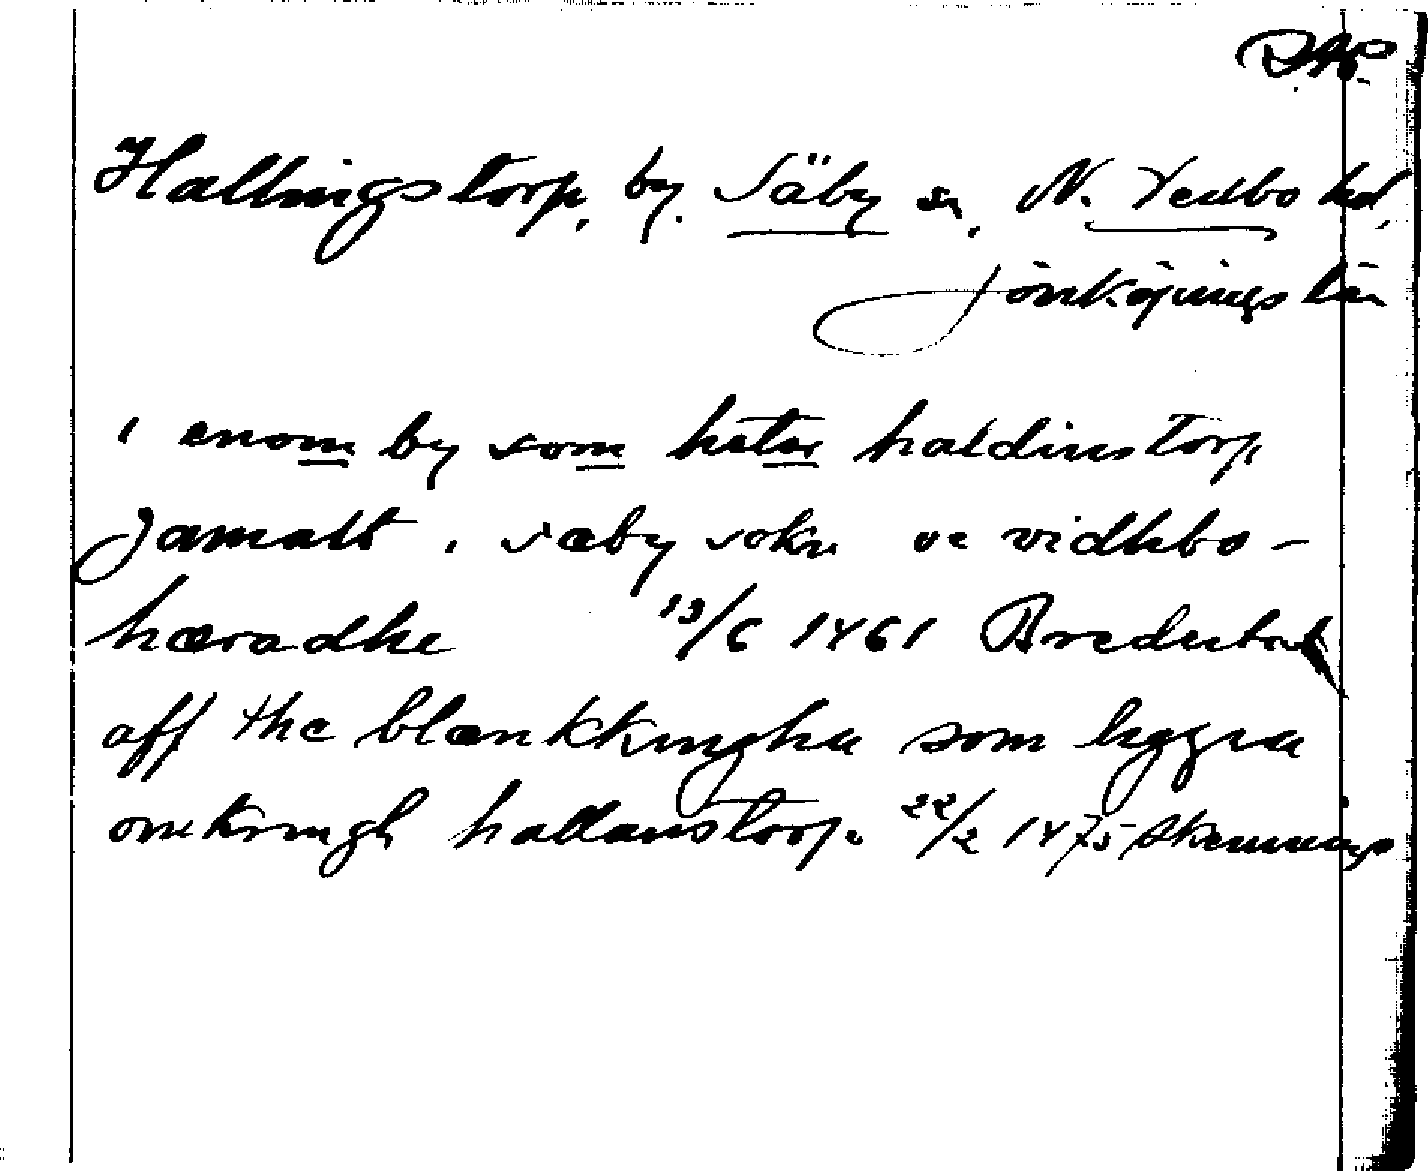 Hallingstorp, by. Säby sn, N. Vedbo hd,
Jönköpings län
i enom by som heter haldinstorp
jamatt i sæby sokn oc vidhbo-
hæradhe 13/6 1461
aff the blænkkingha som liggia
omkringh hallanstorp. 22/2 1475 Skenninge